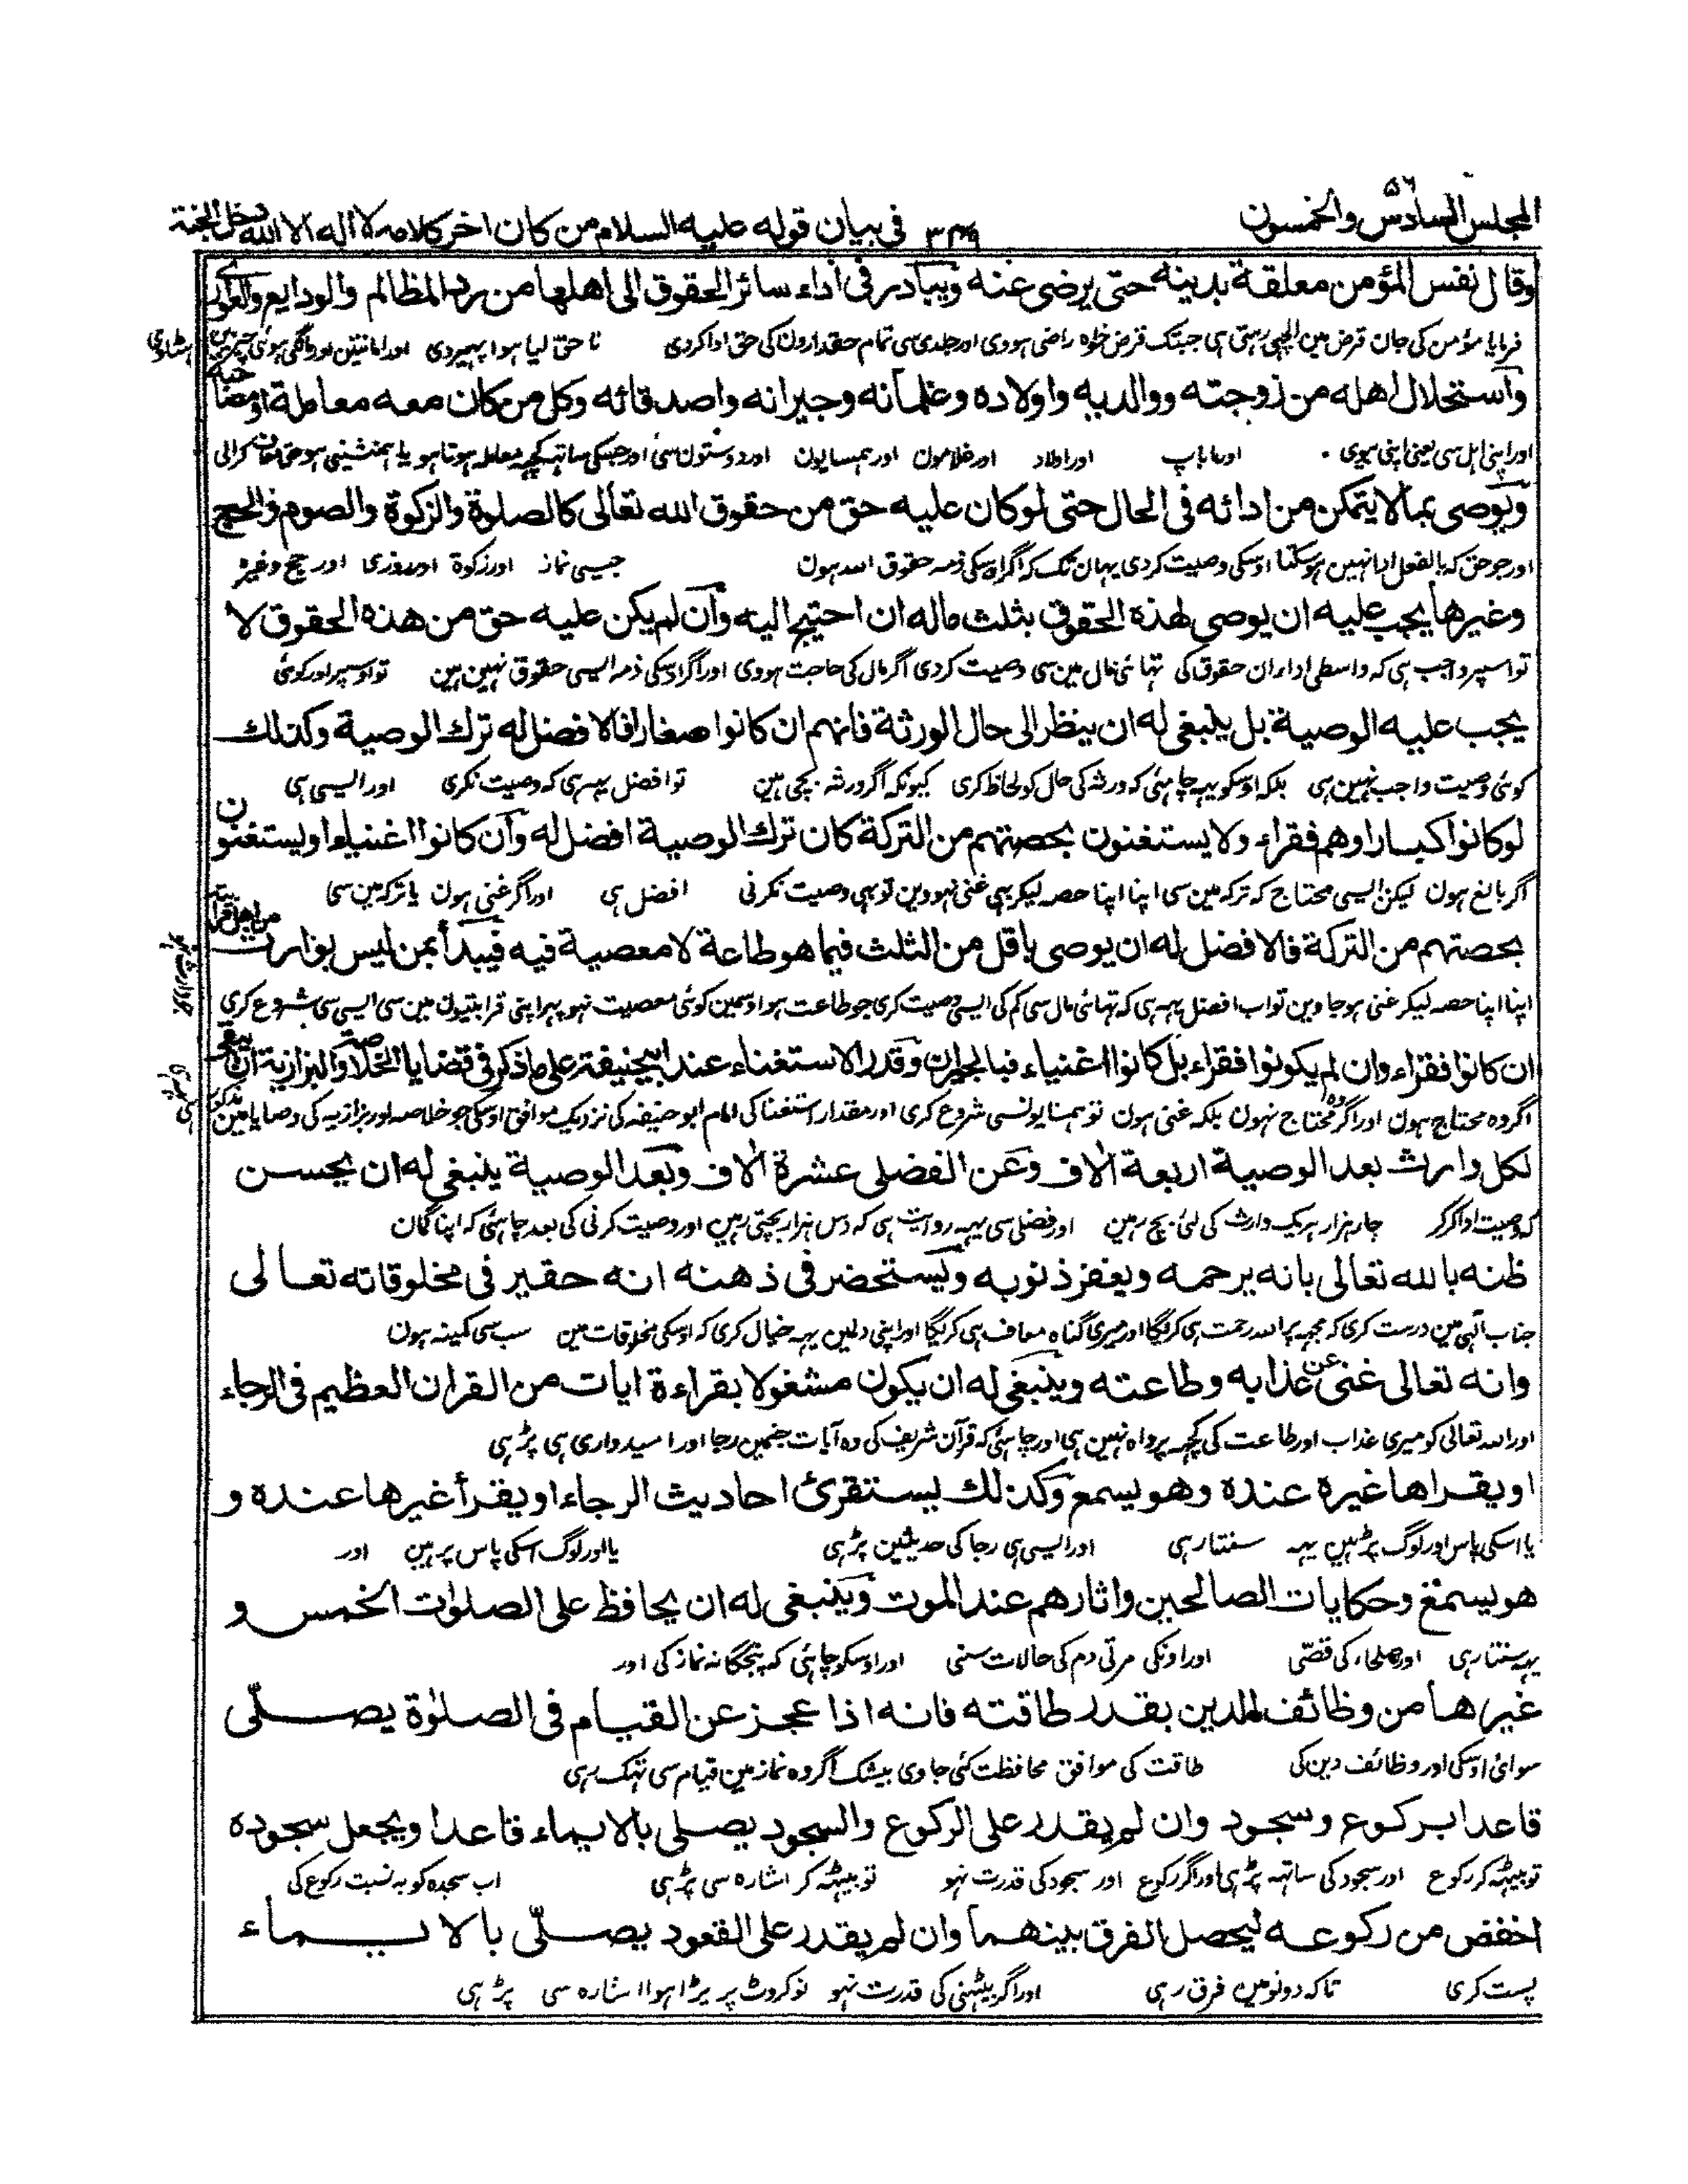 المجلس السادس والخمسون ٥٦
٣٤٩ فى بيان قوله عليه السلام من كان اخر كلامه لا اله الا الله دخل الجنة
وقال نفس المؤمن معلقة بدينه حتى يرضى عنه ويبادر فى اداء سائر الحقوق الى اهلها من رد المظالم والودايع والعوارى
فرمایا مؤمن کی جان قرض مین الجھی رہتی ہی جبتک قرض خواہ راضی ہووی اور جلدی سی تمام حقدارون کی حق ادا کردی ناحق لیا ہوا پھیردی اور امانتین اور مانگی ہوئی چیزین
واستحلال اهله من زوجته ووالديه واولاده وغلمانه وجيرانه واصدقائه وكل من كان معه معاملة او مصاحبة
اور اپنی اہل سی یعنی اپنی بیوی اور ماباپ اور اولاد اور غلامون اور ہمسایون اور دوستون سی اور جسکی ساتھ کچھ معاملہ ہوتا ہو یا ہمنشینی ہو حق معاف کرالی
ويوصى بما لا يتمكن من ادائه فى الحال حتى لو كان عليه حق من حقوق الله تعالى كالصلوة والزكوة والصوم والحج
اور جو حق کہ بالفعل ادا نہین ہوسکتا اوسکی وصیت کردی یہان تک کہ اگر اوسکی ذمہ حقوق اللہ ہون جیسی نماز اور زکوۃ اور روزی اور حج وغیرہ
وغيرها يجب عليه ان يوصى لهذه الحقوق بثلث ماله ان احتيج اليه وان لم يكن عليه حق من هذه الحقوق لا
تو اسپر واجب ہی کہ واسطی اداء ان حقوق کی تہائی مال مین سی وصیت کردی اگر مال کی حاجت ہووی اور اگر اوسکی ذمہ ایسی حقوق نہین ہین تو اوسپر اور کوئی
يجب عليه الوصية بل ينبغى له ان ينظر الى حال الورثة فانهم ان كانوا صغارا فالافضل له ترك الوصية وكذلك
کوئی وصیت واجب نہین ہی بلکہ اوسکو یہہ چاہئی کہ ورثہ کی حال کو لحاظ کری کیونکہ اگر ورثہ بچی ہین تو افضل یہہ ہی کہ وصیت نکری اور ایسی ہی
لو كانوا كبارا وهم فقراء ولا يستغنون بحصتهم من التركة كان ترك الوصية افضل له وان كانوا اغنياء او يستغنون
اگر بالغ ہون لیکن ایسی محتاج کہ ترکہ مین سی اپنا اپنا حصہ لیکر بھی غنی نہووین تو بھی وصیت نکرنی افضل ہی اور اگر غنی ہون یا ترکہ مین سی
بحصتهم من التركة فالافضل له ان يوصى باقل من الثلث فيما هو طاعة لا معصية فيه فيبدأ بمن ليس بوارث من اهل قرابته
اپنا اپنا حصہ لیکر غنی ہوجاوین تو اب افضل یہہ ہی کہ تہائی مال سی کم کی ایسی وصیت کری جو طاعت ہو اوسمین کوئی معصیت نہو پہر اپنی قرابتیون مین سی ایسی سی شروع کری
جو وارث نہو
ان كانوا فقراء وان لم يكونوا فقراء بل كانوا اغنياء فبالجيران وقدر الاستغناء عند ابيحنيفة على ما ذكر فى قضايا الخلاصة والبزازية ان يبقى
اگر وہ محتاج ہون اور اگر وہ محتاج نہون بلکہ غنی ہون تو ہمسایونسی شروع کری اور مقدار استغنا کی امام ابو حنیفہ کی نزدیک موافق اوسکی جو خلاصہ اور بزازیہ کی وصایا مین مذکور
لكل وارث بعد الوصية اربعة الاف وعن الفضلى عشرة الاف وبعد الوصية ينبغى له ان يحسن
کہ وصیت ادا کرکر چار ہزار ہریک وارث کی لئی بچ رہین اور فضلی سی یہہ روایت ہی کہ دس ہزار بچتی رہین اور وصیت کرنی کی بعد چاہئی کہ اپنا گمان
ظنه بالله تعالى بانه يرحمه ويغفر ذنوبه ويستحضر فى ذهنه انه حقير فى مخلوقاته تعالى
جناب آلہی مین درست کری کہ مجھ پر اللہ رحمت ہی کریگا اور میری گناہ معاف ہی کریگا اور اپنی دلمین یہہ خیال کری کہ اوسکی مخلوقات مین سب سی کمینہ ہون
وانه تعالى غنى عن عذابه وطاعته وينبغى له ان يكون مشغولا بقراءة ايات من القران العظيم فى الرجاء
اور اللہ تعالی کو میری عذاب اور طاعت کی کچھ پرواہ نہین ہی اور چاہئی کہ قرآن شریف کی وہ آیات جنمین رجا اور امیدواری ہی پڑہی
او يقراها غيره عنده وهو يسمع وكذلك يستقرئ احاديث الرجاء او يقرأ غيرها عنده و
یا اسکی پاس اور لوگ پڑہین یہہ سنتا رہی اور ایسی ہی رجا کی حدیثین پڑہی یا اور لوگ اسکی پاس پرہین اور
هو يسمع وحكايات الصالحين واثارهم عند الموت وينبغى له ان يحافظ على الصلوات الخمس و
یہہ سنتا رہی اور صلحاء کی قصّی اور اونکی مرتی دم کی حالات سنی اور اوسکو چاہئی کہ پنجگانہ نماز کی اور
غيرها من وظائف الدين بقدر طاقته فانه اذا عجز عن القيام فى الصلوة يصلّى
سوائی اوسکی اور وظائف دین کی طاقت کی موافق محافظت کئی جاوی بیشک اگر وہ نماز مین قیام سی تہک رہی
قاعدا بركوع وسجود وان لم يقدر على الركوع والسجود يصلى بالايماء قاعدا ويجعل سجوده
تو بیٹھ کر رکوع اور سجود کی ساتھ پڑہی اور اگر رکوع اور سجود کی قدرت نہو تو بیٹھ کر اشارہ سی پڑہی اب سجدہ کو بہ نسبت رکوع کی
اخفض من ركوعه ليحصل الفرق بينهما وان لم يقدر على القعود يصلّى بالايماء
پست کری تاکہ دونو مین فرق رہی اور اگر بیٹھنی کی قدرت نہو تو کروٹ پر پڑا ہوا اشارہ سی پڑہی